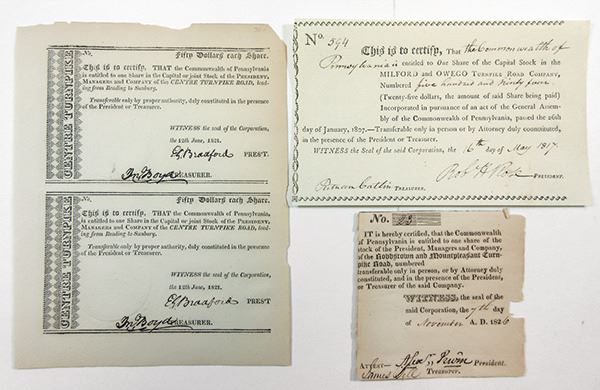 CENTRE TURNPIKE
No. Fifty Dollars each Share.
This is to certify, THAT the Commonwealth of Pennsylvania
is entitled to one Share in the Capital or joint Stock of the PRESIDENT,
MANAGERS and COMPANY of the CENTRE TURNPIKE ROAD, lead-
ing from Reading to Sunbury.
Transferable only by proper authority, duly constituted in the presence
of the President or Treasurer.
WITNESS the seal of the Corporation,
the 12th June, 1821.
PRES'T.
TREASURER.
CENTRE TURNPIKE
No. Fifty Dollars each Share.
This is to certify, THAT the Commonwealth of Pennsylvania
is entitled to one Share in the Capital or joint Stock of the PRESIDENT,
MANAGERS and COMPANY of the CENTRE TURNPIKE ROAD, lead-
ing from Reading to Sunbury.
Transferable only by proper authority, duly constituted in the presence
of the President or Treasurer.
WITNESS the seal of the Corporation,
the 12th June, 1821.
PRES'T
TREASURER.
No. 594
This is to certify, That the Commonwealth of
Pennsylvania is entitled to One Share of the Capital Stock in the
MILFORD and OWEGO TURNPIKE ROAD COMPANY,
Numbered five hundred and Ninty four
(Twenty-five dollars, the amount of said Share being paid)
Incorporated in pursuance of an act of the General Assem-
bly of the Commonwealth of Pennsylvania, passed the 26th
day of January, 1807.—Transferable only in person or by Attorney duly constituted,
in the presence of the President or Treasurer.
WITNESS the Seal of the said Corporation, the 16th day of May 1817.
PRESIDENT.
Putnam Catlin TREASURER.
No. 23
IT is hereby certified, that the Commonwealth
of Pennsylvania is entitled to one share of the
stock of the President, Managers and Company,
of the Robbstown and Mountpleasant Turn-
pike Road, numbered
transferable only in person, or by Attorney duly
constituted, and in the presence of the President,
or Treasurer of the said Company.
WITNESS, the seal of the
said Corporation, the 7th day
of November A. D. 1826
ATTEST— President.
James Treasurer.